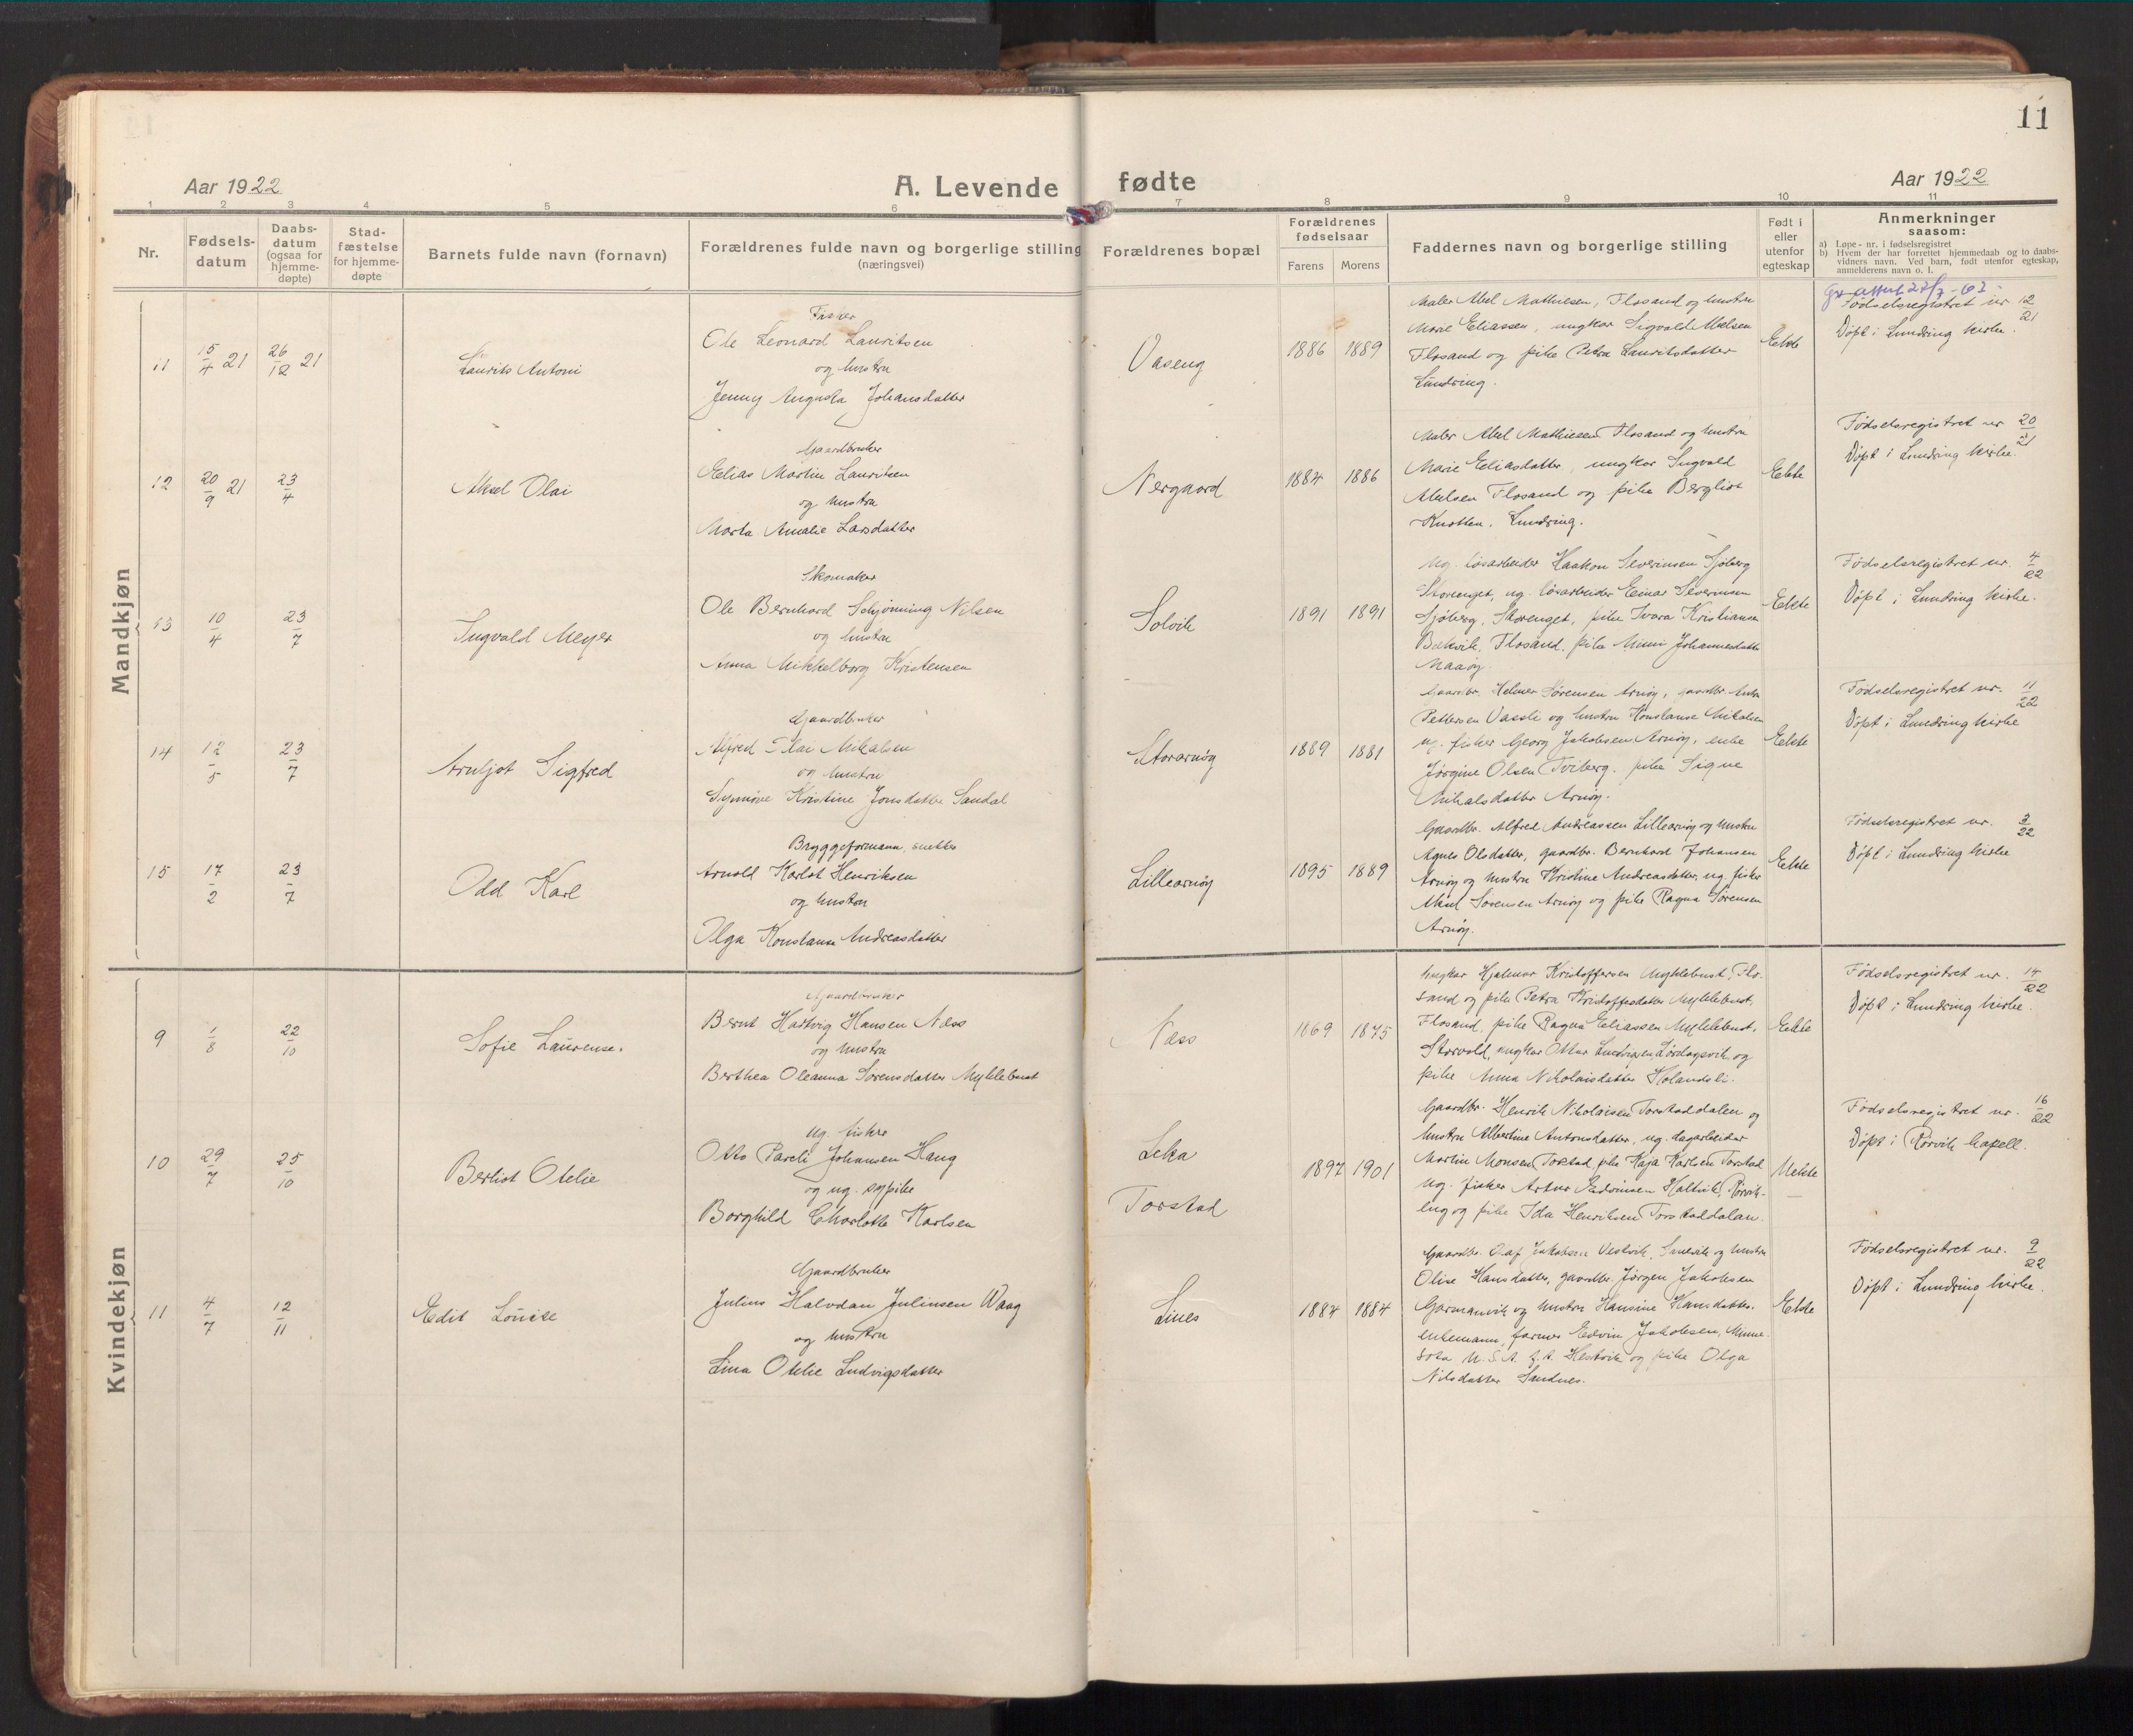 11
Aar 1922
A. Levende fødte
Aar 1922
1 2 3 4 5 6 7 8 9 10 11
Nr.
Fødsels-
datum
Daabs-
datum
(ogsaa for
hjemme-
døpte)
Stad-
fæstelse
for hjemme-
døpte
Barnets fulde navn (fornavn)
Forældrenes fulde navn og borgerlige stilling
(næringsvei)
Forældrenes bopæl
Forældrenes
fødselsaar
Farens Morens
Faddernes navn og borgerlige stilling
Født i
eller
utenfor
egteskap
Anmerkninger
saasom:
a) Løpe-nr. i fødselsregistret
b) Hvem der har forrettet hjemmedaab og to daabs-
vidners navn. Ved barn, født utenfor egteskap,
anmelderens navn o. l.
Mandkjøn
11
15/4 21
26/12 21
Laurits Antoni
Fisker
Ole Leonard Lauritsen
og hustru
Jenny Augusta Johansdatter
Vaseng
1886 1889
Maler Abel Mathiesen, Flosand og hustru
Marie Eliassen, ungkar Sigvald Abelsen
Flosand og pike Petra Lauritsdatter
Lundring.
Ekte
Fødselsregistret nr 12/21
Døpt i Lundring kirke.
12
20/9 21
23/4
Aksel Olai
Gaardbruker
Elias Martin Lauritsen
og hustru
Marta Amalie Larsdatter
Nergaard
1884 1886
Maler Abel Mathiesen Flosand og hustru
Marie Eliasdatter, ungkar Sugvald
Abelsen Flosand og pike Bergliot
Knotten. Lundring.
Ekte
Fødselsregistret nr 20/21
Døpt i Lundring kirke.
13
10/4
23/7
Ingvald Meyer
Skomaker
Ole Bernhard Schjønning Nilsen
og hustru
Anna Mikkelborg Kristensen
Solvik
1891 1891
Ug. løsarbeider Haakon Severinsen Sjøberg
Storenget, ug. løsarbeider Einar Severinsen
Sjøberg, Storenget, pike Ivara Kristiansen
Bakvik, Flosand, pike Mimi Johannesdatter
Maaøy.
Ekte
Fødselsregistret nr. 4/22
Døpt i Lundring kirke.
14
12/5
23/7
Arnljot Sigfred
Gaardbruker
Alfred Olai Mikalsen
og hustru
Synnøve Kristine Jonsdatter Sandal
Storarnøy
1889 1881
Gaardbr. Helmer Sørensen Arnøy, gaardbr.
Pettersen Vassli og hustru Konstanse Mikalsen
ug. fisker Georg Jakobsen Arnøy, enke
Jørgine Olsen Tviberg. pike Signe
Mikalsdatter Arnøy.
Ekte
Fødselsregistret nr. 11/22
Døpt i Lundring kirke
15
17/2
23/7
Odd Karl
Bryggeformann, snekker
Arnold Karlot Henriksen
og hustru
Olga Konstanse Andreasdatter
Lillearnøy
1895 1889
Gaardbr. Alfred Andreassen Lillearnøy og hustru
Agnes Olsdatter, gaardbr. Bernhard Johansen
Arnøy og hustru Kristine Andreasdatter, ug. fisker
Sørensen Arnøy og pike Ragna Sørensen
Arnøy.
Ekte
Fødselsregistret nr. 3/22
Døpt i Lundring kirke
Kvindekjøn
9
1/8
22/10
Sofie Laurense.
Gaardbruker
Bernt Hartvig Hansen Næss
og hustru
Berthea Oleanna Sørensdatter Myklebust
Næss
1869 1875
Ungkar Hjalmar Kristoffersen Myklebust, Flo-
sand og pike Petra Kristoffersdatter Myklebust,
Flosand, pike Ragna Eliassen Myklebust,
Storvold, ungkar Ottar Ludvigsen Lørdagsvik og
pike Anna Nikolaisdatter Holandsli.
Ekte
Fødselsregistret nr. 14/22
Døpt i Lundring kirke.
10
29/7
25/10
Berliot Otelie
Ug. fisker
Otto Pareli Johansen Haug
og ug. sypike
Borghild Charlotte Karlsen
Leka
Torstad
1897 1901
Gaardbr. Henrik Nikolaisen Torstaddalen og
hustru Albertine Antonsdatter, ug. dagarbeider
Martin Monsen Torstad, pike Kaja Karlsen Torstad
ug. fisker Artur Edvinsen Holtvik, Rørvik-
eng og pike Ida Henriksen Torstaddalen.
Uekte
Fødselsregistret nr. 16/22
Døpt i Rørvik kapell.
11
4/7
12/11
Edit Louise
Gaardbruker
Julius Halvdan Juliusen Waag
og hustru
Lina Otelie Ludvigsdatter
Lines
1884 1884
Gaardbr. Olaf Jakobsen Vestvik, og hustru
Olise Hansdatter, gaardbr. Jørgen Jakobsen
Garmannvik og hustru Hansine Hansdatter.
enkemann, farmer Edvin Jakobsen, Minne-
sota U.S.A. p.t. Hestvik og pike Olga
Nilsdatter Sandnes.
Ekte
Fødselsregistret nr. 9/22
Døpt i Lundring kirke.